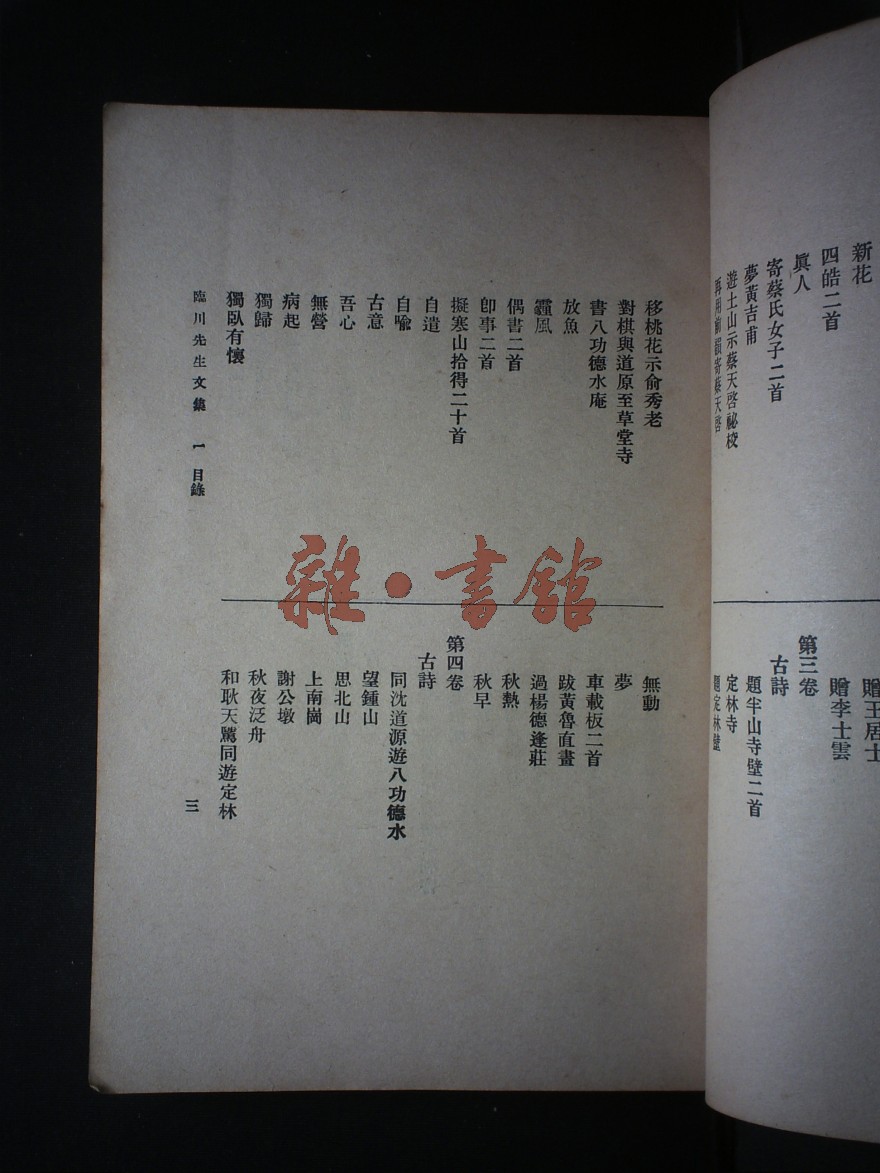 新花
四皓二首
眞人
寄蔡氏女子二首
夢黃吉甫
遊土山示蔡天啓祕校
再用前韻寄蔡天啓
贈王居士
贈李士雲
第三卷
古詩
題半山寺壁二首
定林寺
題定林壁
移桃花示俞秀老
對棋與道原至草堂寺
書八功德水庵
放魚
霾風
偶書二首
卽事二首
擬寒山拾得二十首
自遣
自喩
古意
吾心
無營
病起
獨歸
獨臥有懷
無動
夢
車載板二首
跋黃魯直畫
過楊德逢莊
秋熱
秋早
第四卷
古詩
同沈道源遊八功德水
望鍾山
思北山
上南崗
謝公墩
秋夜泛舟
和耿天騭同遊定林
臨川先生文集 一 目錄
三
雜·書館